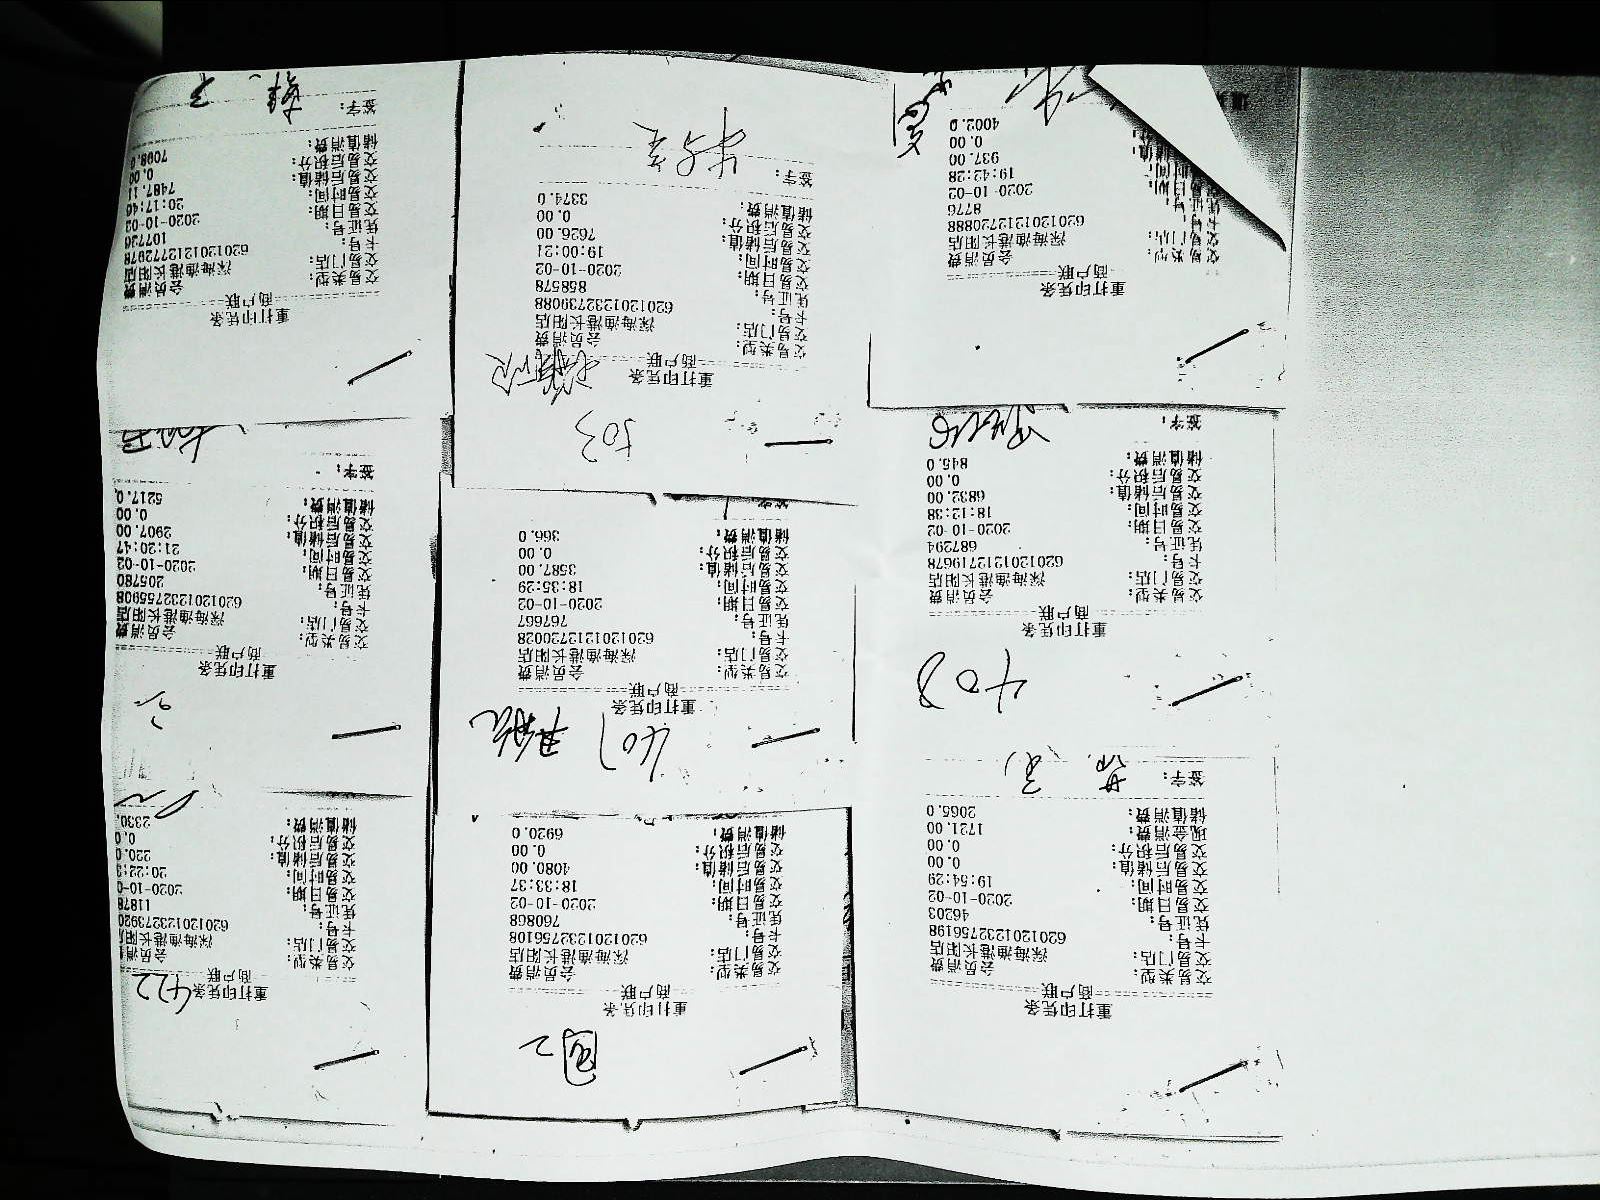 重打印凭条
商户联
交易类型: 会员消费
交易门店: 深海渔港长阳店
卡号: 6201201232756198
凭证号: 46203
交易日期: 2020-10-02
交易时间: 19:54:29
交易后储值: 0.00
交易后积分: 0.00
现金消费: 1721.00
储值消费: 2065.0
签字:
包2
重打印凭条
商户联
交易类型: 会员消费
交易门店: 深海渔港长阳店
卡号: 6201201232756108
凭证号: 760868
交易日期: 2020-10-02
交易时间: 18:33:37
交易后储值: 4080.00
交易后积分: 0.00
储值消费: 6920.0
重打印凭条 422
商户联
交易类型: 会员消
交易门店: 深海渔港长阳
卡号: 620120123273920
凭证号: 11878
交易日期: 2020-10-0
交易时间: 20:22:3
交易后储值: 220.0
交易后积分: 0.0
储值消费: 2330.
408
重打印凭条
商户联
交易类型: 会员消费
交易门店: 深海渔港长阳店
卡号: 6201201212719678
凭证号: 687294
交易日期: 2020-10-02
交易时间: 18:12:38
交易后储值: 6832.00
交易后积分: 0.00
储值消费: 845.0
签字:
407
重打印凭条
商户联
交易类型: 会员消费
交易门店: 深海渔港长阳店
卡号: 6201201212720028
凭证号: 767667
交易日期: 2020-10-02
交易时间: 18:35:29
交易后储值: 3587.00
交易后积分: 0.00
储值消费: 366.0
重打印凭条
商户联
交易类型: 会员消费
交易门店: 深海渔港长阳店
卡号: 6201201232755908
凭证号: 205780
交易日期: 2020-10-02
交易时间: 21:20:47
交易后储值: 2907.00
交易后积分: 0.00
储值消费: 5217.0
签字:
重打印凭条
商户联
交易类型: 会员消费
交易门店: 深海渔港长阳店
卡号: 6201201212720888
凭证号: 8776
2020-10-02
19:42:28
937.00
0.00
4002.0
503
重打印凭条
商户联
交易类型: 会员消费
交易门店: 深海渔港长阳店
卡号: 6201201232730088
凭证号: 858578
交易日期: 2020-10-02
交易时间: 19:00:21
交易后储值: 7626.00
交易后积分: 0.00
储值消费: 3374.0
签字:
重打印凭条
商户联
交易类型: 会员消费
交易门店: 深海渔港长阳店
卡号: 6201201212772978
凭证号: 107736
交易日期: 2020-10-02
交易时间: 20:17:46
交易后储值: 7487.11
交易后积分: 0.00
储值消费: 7098.0
签字: